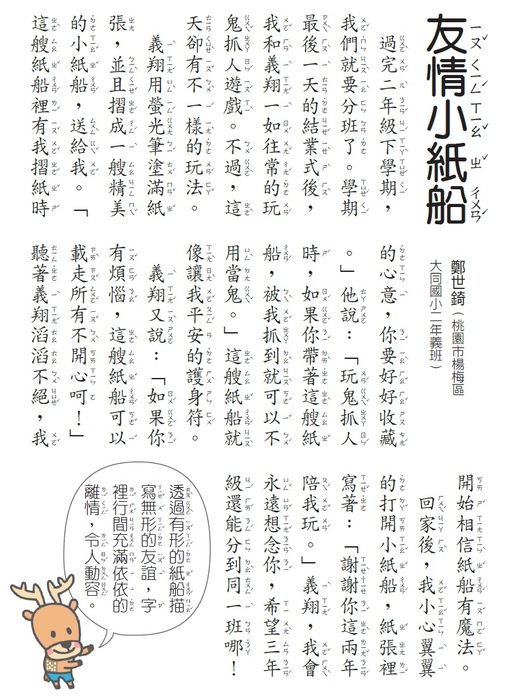 友情小紙船
鄭世錡（桃園市楊梅區
大同國小二年義班）
過完二年級下學期，
我們就要分班了。學期
最後一天的結業式後，
我和義翔一如往常的玩
鬼抓人遊戲。不過，這
天卻有不一樣的玩法。
義翔用螢光筆塗滿紙
張，並且摺成一艘精美
的小紙船，送給我。「
這艘紙船裡有我摺紙時
的心意，你要好好收藏
。」他說：「玩鬼抓人
時，如果你帶著這艘紙
船，被我抓到就可以不
用當鬼。」這艘紙船就
像讓我平安的護身符。
義翔又說：「如果你
有煩惱，這艘紙船可以
載走所有不開心呵！」
聽著義翔滔滔不絕，我
開始相信紙船有魔法。
回家後，我小心翼翼
的打開小紙船，紙張裡
寫著：「謝謝你這兩年
陪我玩。」義翔，我會
永遠想念你，希望三年
級還能分到同一班哪！
透過有形的紙船描
寫無形的友誼，字
裡行間充滿依依的
離情，令人動容。